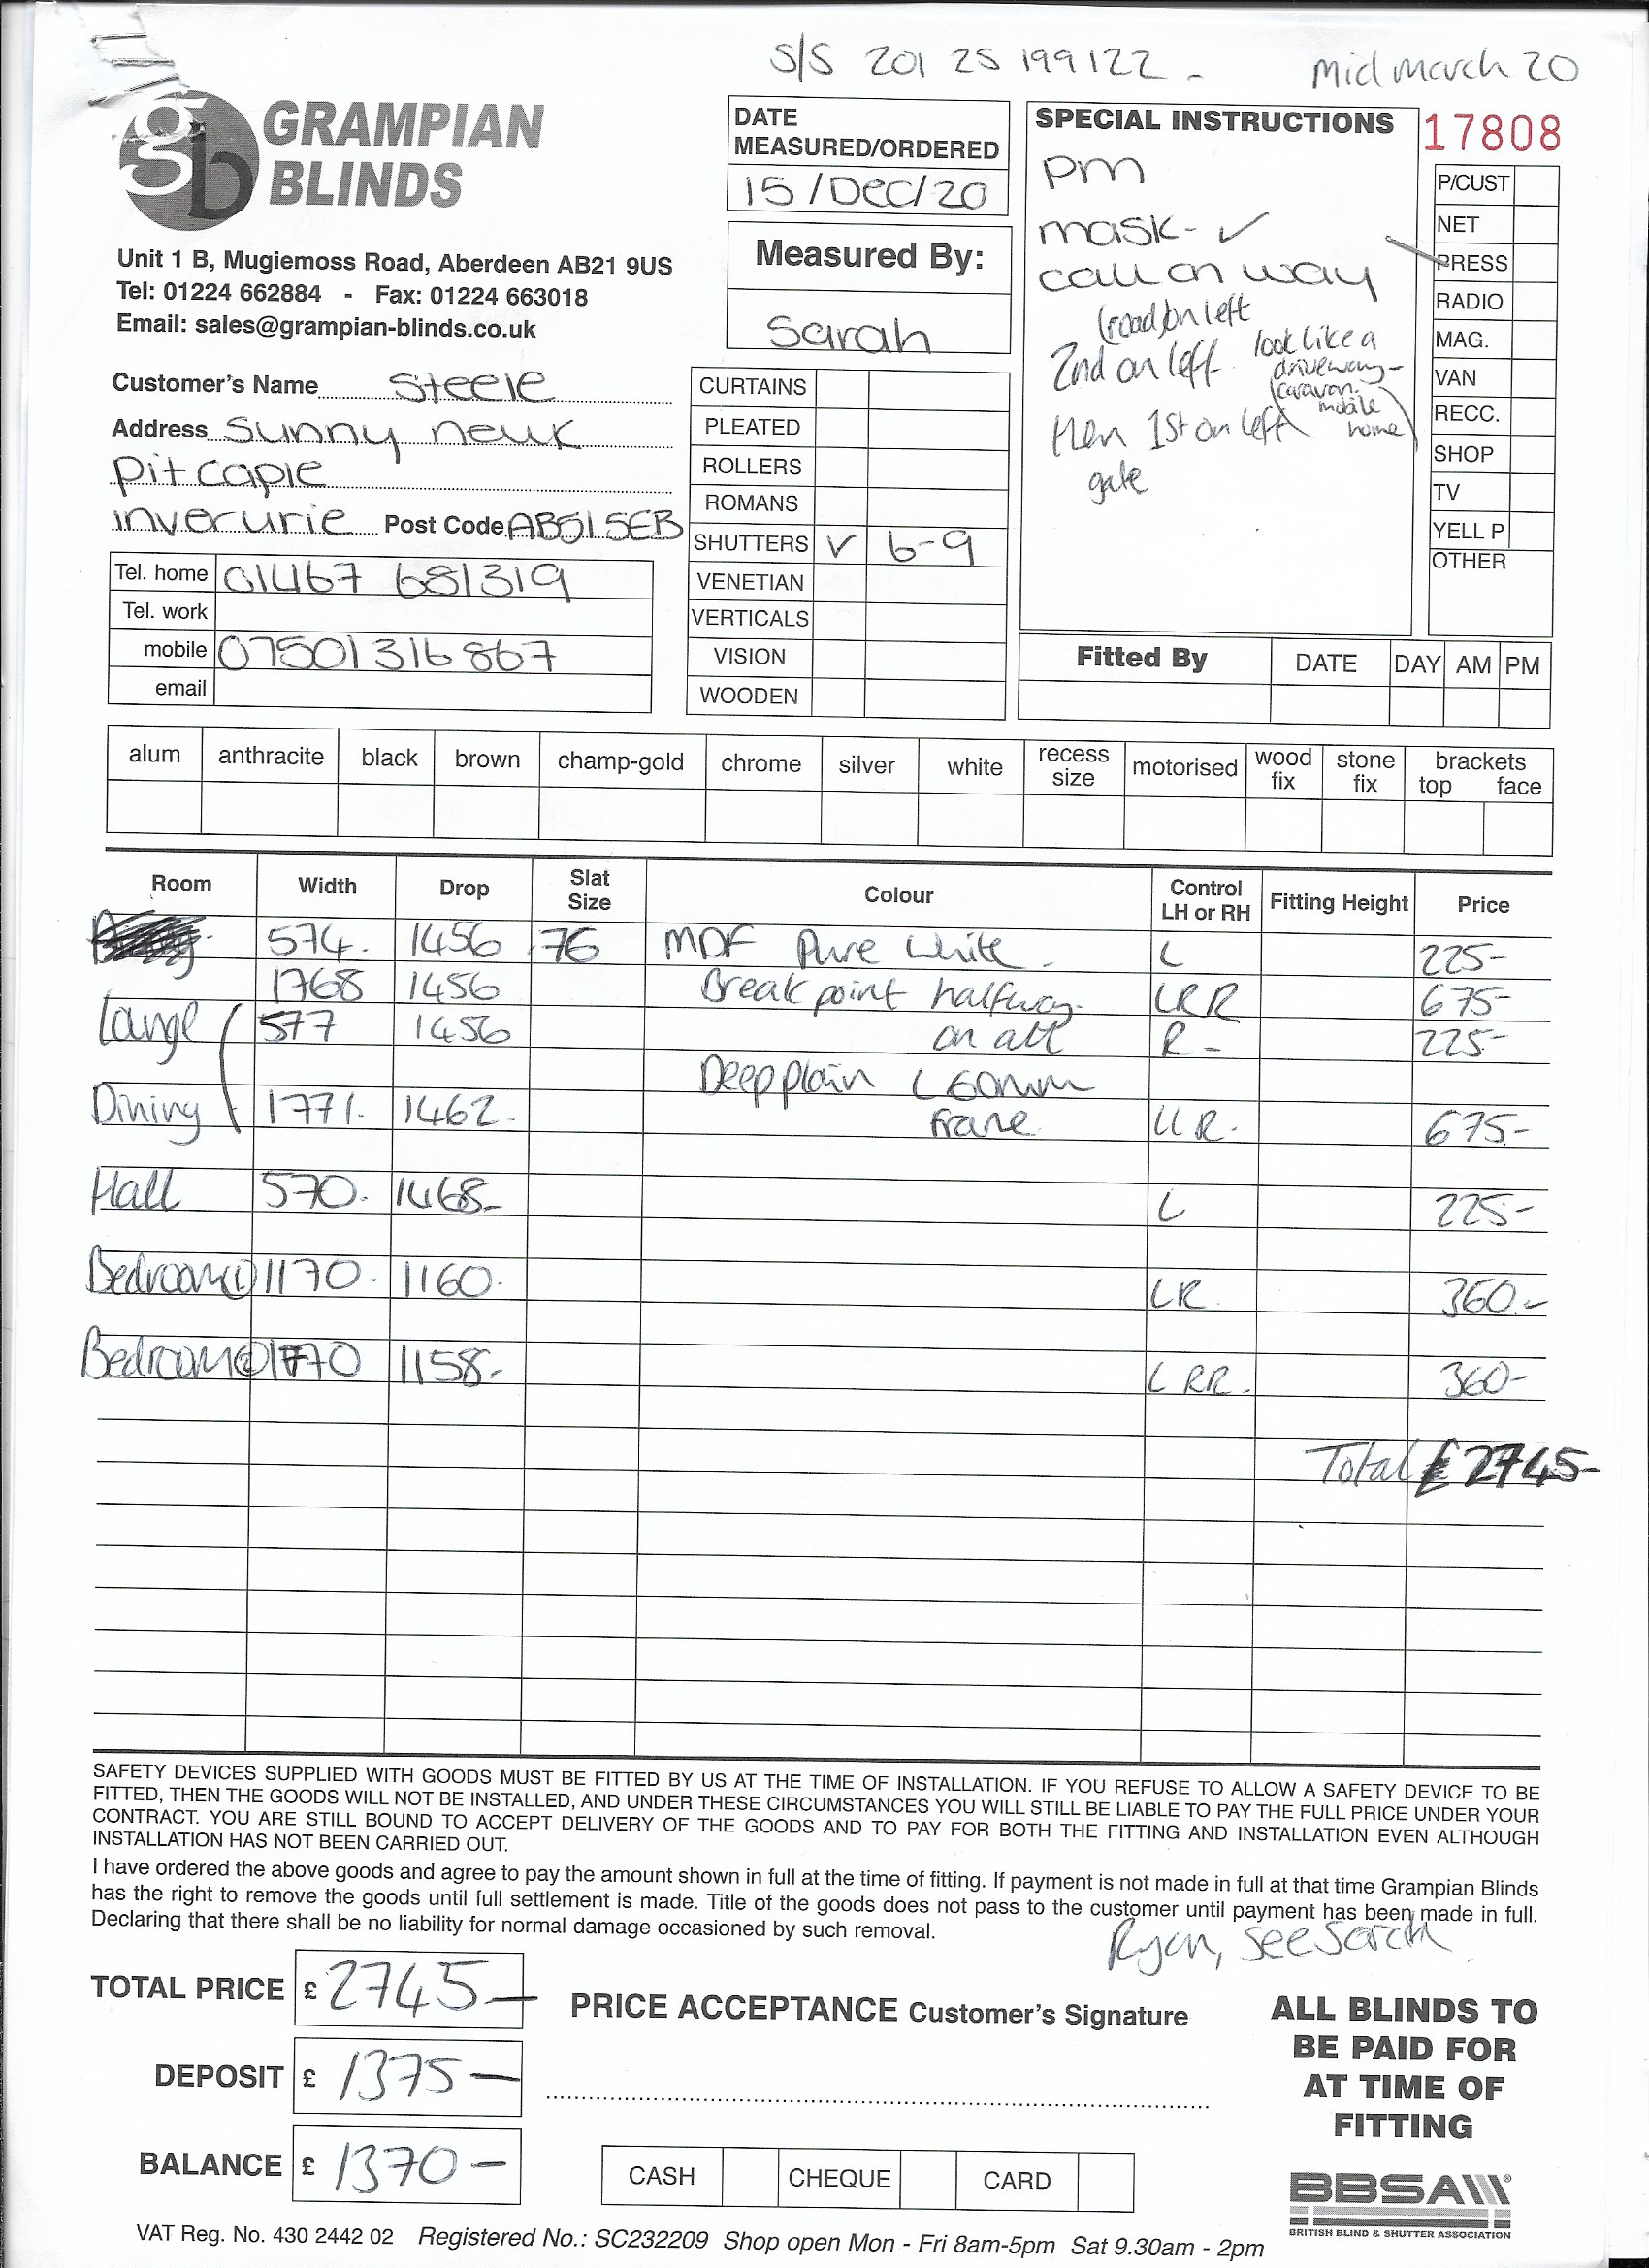 S/S 201 25 199122 -
Mid march 20
GRAMPIAN
BLINDS
gb
Unit 1 B, Mugiemoss Road, Aberdeen AB21 9US
Tel: 01224 662884 - Fax: 01224 663018
Email: sales@grampian-blinds.co.uk
Customer's Name Steele
Address Sunny neuk
Pitcaple
inverurie Post Code AB51 5EB
Tel. home 01467 681319
Tel. work
mobile 07501316867
email
DATE
MEASURED/ORDERED
15/Dec/20
Measured By:
Sarah
CURTAINS
PLEATED
ROLLERS
ROMANS
SHUTTERS ✓ 6-9
VENETIAN
VERTICALS
VISION
WOODEN
SPECIAL INSTRUCTIONS
pm
mask- ✓
call on way
(road on left
2nd on left look like a
driveway-
(caravan.
mobile
home)
then 1st on left
gate
17808
P/CUST
NET
PRESS
RADIO
MAG.
VAN
RECC.
SHOP
TV
YELL P
OTHER
Fitted By DATE DAY AM PM
alum anthracite black brown champ-gold chrome silver white recess size motorised wood fix stone fix brackets top face
Room Width Drop Slat Size Colour Control LH or RH Fitting Height Price
574. 1456 76 MDF Pure White. L 225-
1768 1456 Break point halfway LRR 675-
Lounge 577 1456 on all R- 225-
Deep plain L 60mm
Dining 1771. 1462. Frame LLR. 675-
Hall 570. 1468- L 225-
Bedroom① 1170. 1160. LR. 360-
Bedroom② 1170 1158- LRR. 360-
Total £2745-
SAFETY DEVICES SUPPLIED WITH GOODS MUST BE FITTED BY US AT THE TIME OF INSTALLATION. IF YOU REFUSE TO ALLOW A SAFETY DEVICE TO BE
FITTED, THEN THE GOODS WILL NOT BE INSTALLED, AND UNDER THESE CIRCUMSTANCES YOU WILL STILL BE LIABLE TO PAY THE FULL PRICE UNDER YOUR
CONTRACT. YOU ARE STILL BOUND TO ACCEPT DELIVERY OF THE GOODS AND TO PAY FOR BOTH THE FITTING AND INSTALLATION EVEN ALTHOUGH
INSTALLATION HAS NOT BEEN CARRIED OUT.
I have ordered the above goods and agree to pay the amount shown in full at the time of fitting. If payment is not made in full at that time Grampian Blinds
has the right to remove the goods until full settlement is made. Title of the goods does not pass to the customer until payment has been made in full.
Declaring that there shall be no liability for normal damage occasioned by such removal.
Ryan, see Sarah.
TOTAL PRICE £ 2745-
DEPOSIT £ 1375-
BALANCE £ 1370-
PRICE ACCEPTANCE Customer's Signature
CASH CHEQUE CARD
ALL BLINDS TO
BE PAID FOR
AT TIME OF
FITTING
BBSA
BRITISH BLIND & SHUTTER ASSOCIATION
VAT Reg. No. 430 2442 02 Registered No.: SC232209 Shop open Mon - Fri 8am-5pm Sat 9.30am - 2pm